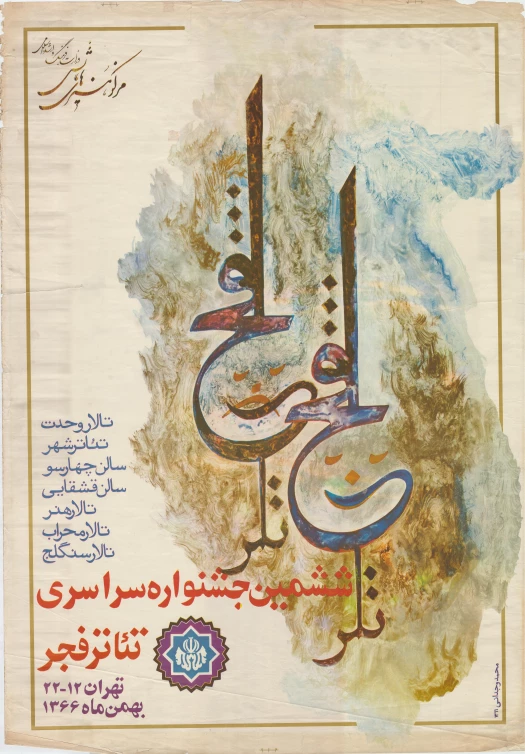 وزارت فرهنگ و ارشاد اسلامی
مرکز هنرهای نمایشی
تالار وحدت
تئاتر شهر
سالن چهارسو
سالن قشقایی
تالار هنر
تالار محراب
تالار سنگلج
ششمین جشنواره سراسری
تئاتر فجر
تهران ۱۲-۲۲
بهمن ماه ۱۳۶۶